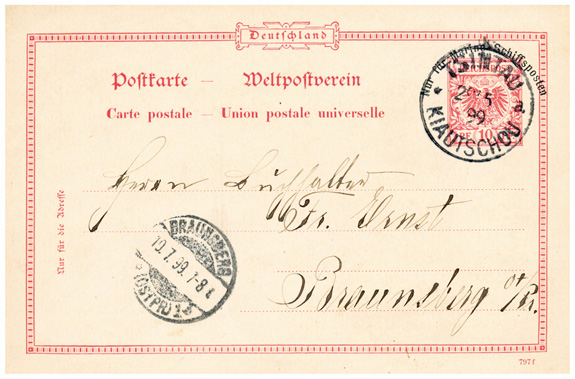 Deutschland
Nur für Marine-Schiffsposten
TSINTAU
29 5
99
a.
KIAUTSCHOU
10
Postkarte — Weltpostverein
Carte postale — Union postale universelle
Nur für die Adresse
Herrn Buchhalter
Fr. Ernst
Braunsberg o/Pr.
BRAUNSBERG
10.7.99.7-8 N
(OSTPR) 1
7971